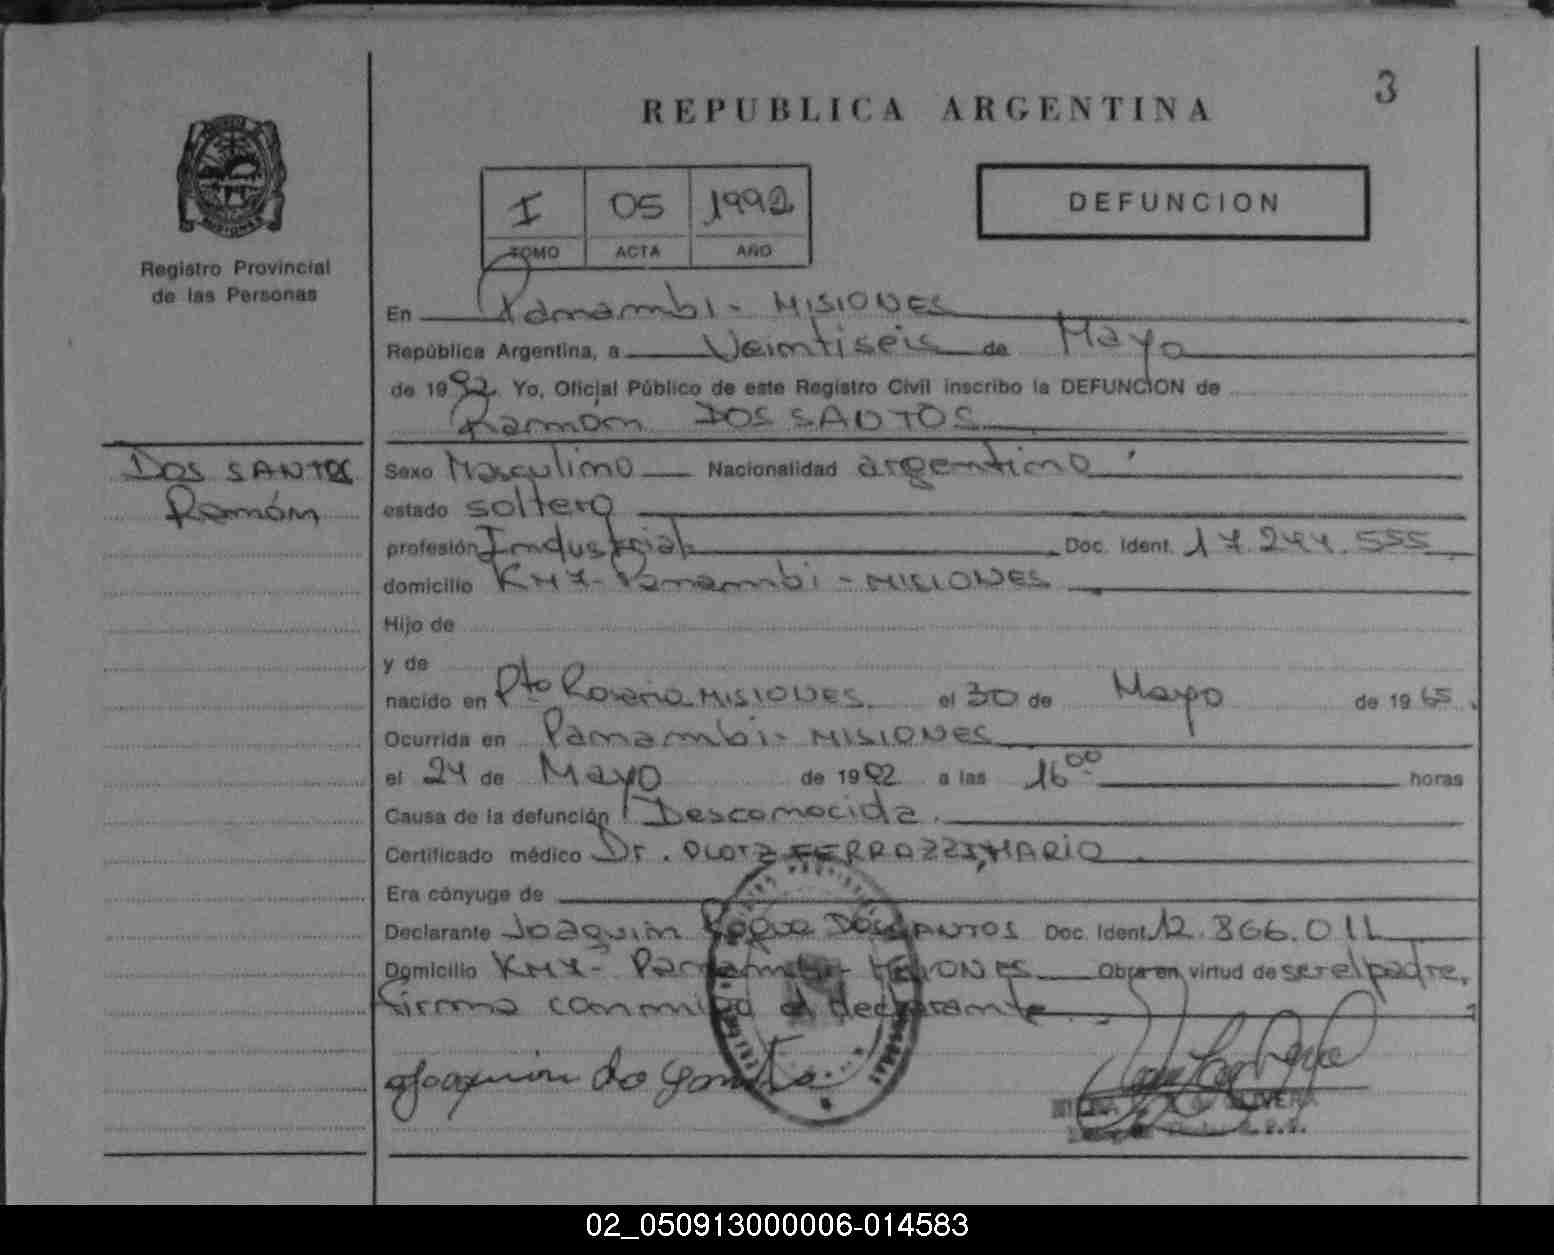 3
REPUBLICA ARGENTINA
I 05 1992
TOMO ACTA AÑO
DEFUNCION
Registro Provincial
de las Personas
En Panambi - MISIONES
República Argentina, a Veintiseis de Mayo
de 1992. Yo, Oficial Público de este Registro Civil inscribo la DEFUNCION de
Ramón DOS SANTOS
DOS SANTOS
Ramón
Sexo Masculino Nacionalidad argentino
estado soltero
profesión Industrial Doc. Ident. 17.244.555
domicilio KM 7 - Panambi - MISIONES
Hijo de
y de
nacido en Pto Rosario MISIONES. el 30 de Mayo de 1965.
Ocurrida en Panambi - MISIONES
el 24 de Mayo de 1992 a las 16 00 horas
Causa de la defunción Desconocida.
Certificado médico Dr. FERRAZZI, MARIO
Era cónyuge de
Declarante Joaquin Roque DOS SANTOS Doc. Ident. 12.866.011
Domicilio KM 7 - Panambi - MISIONES Obra en virtud de ser el padre,
firma conmigo el declarante
Joaquin do Santo
OLIVERA
02_050913000006-014583